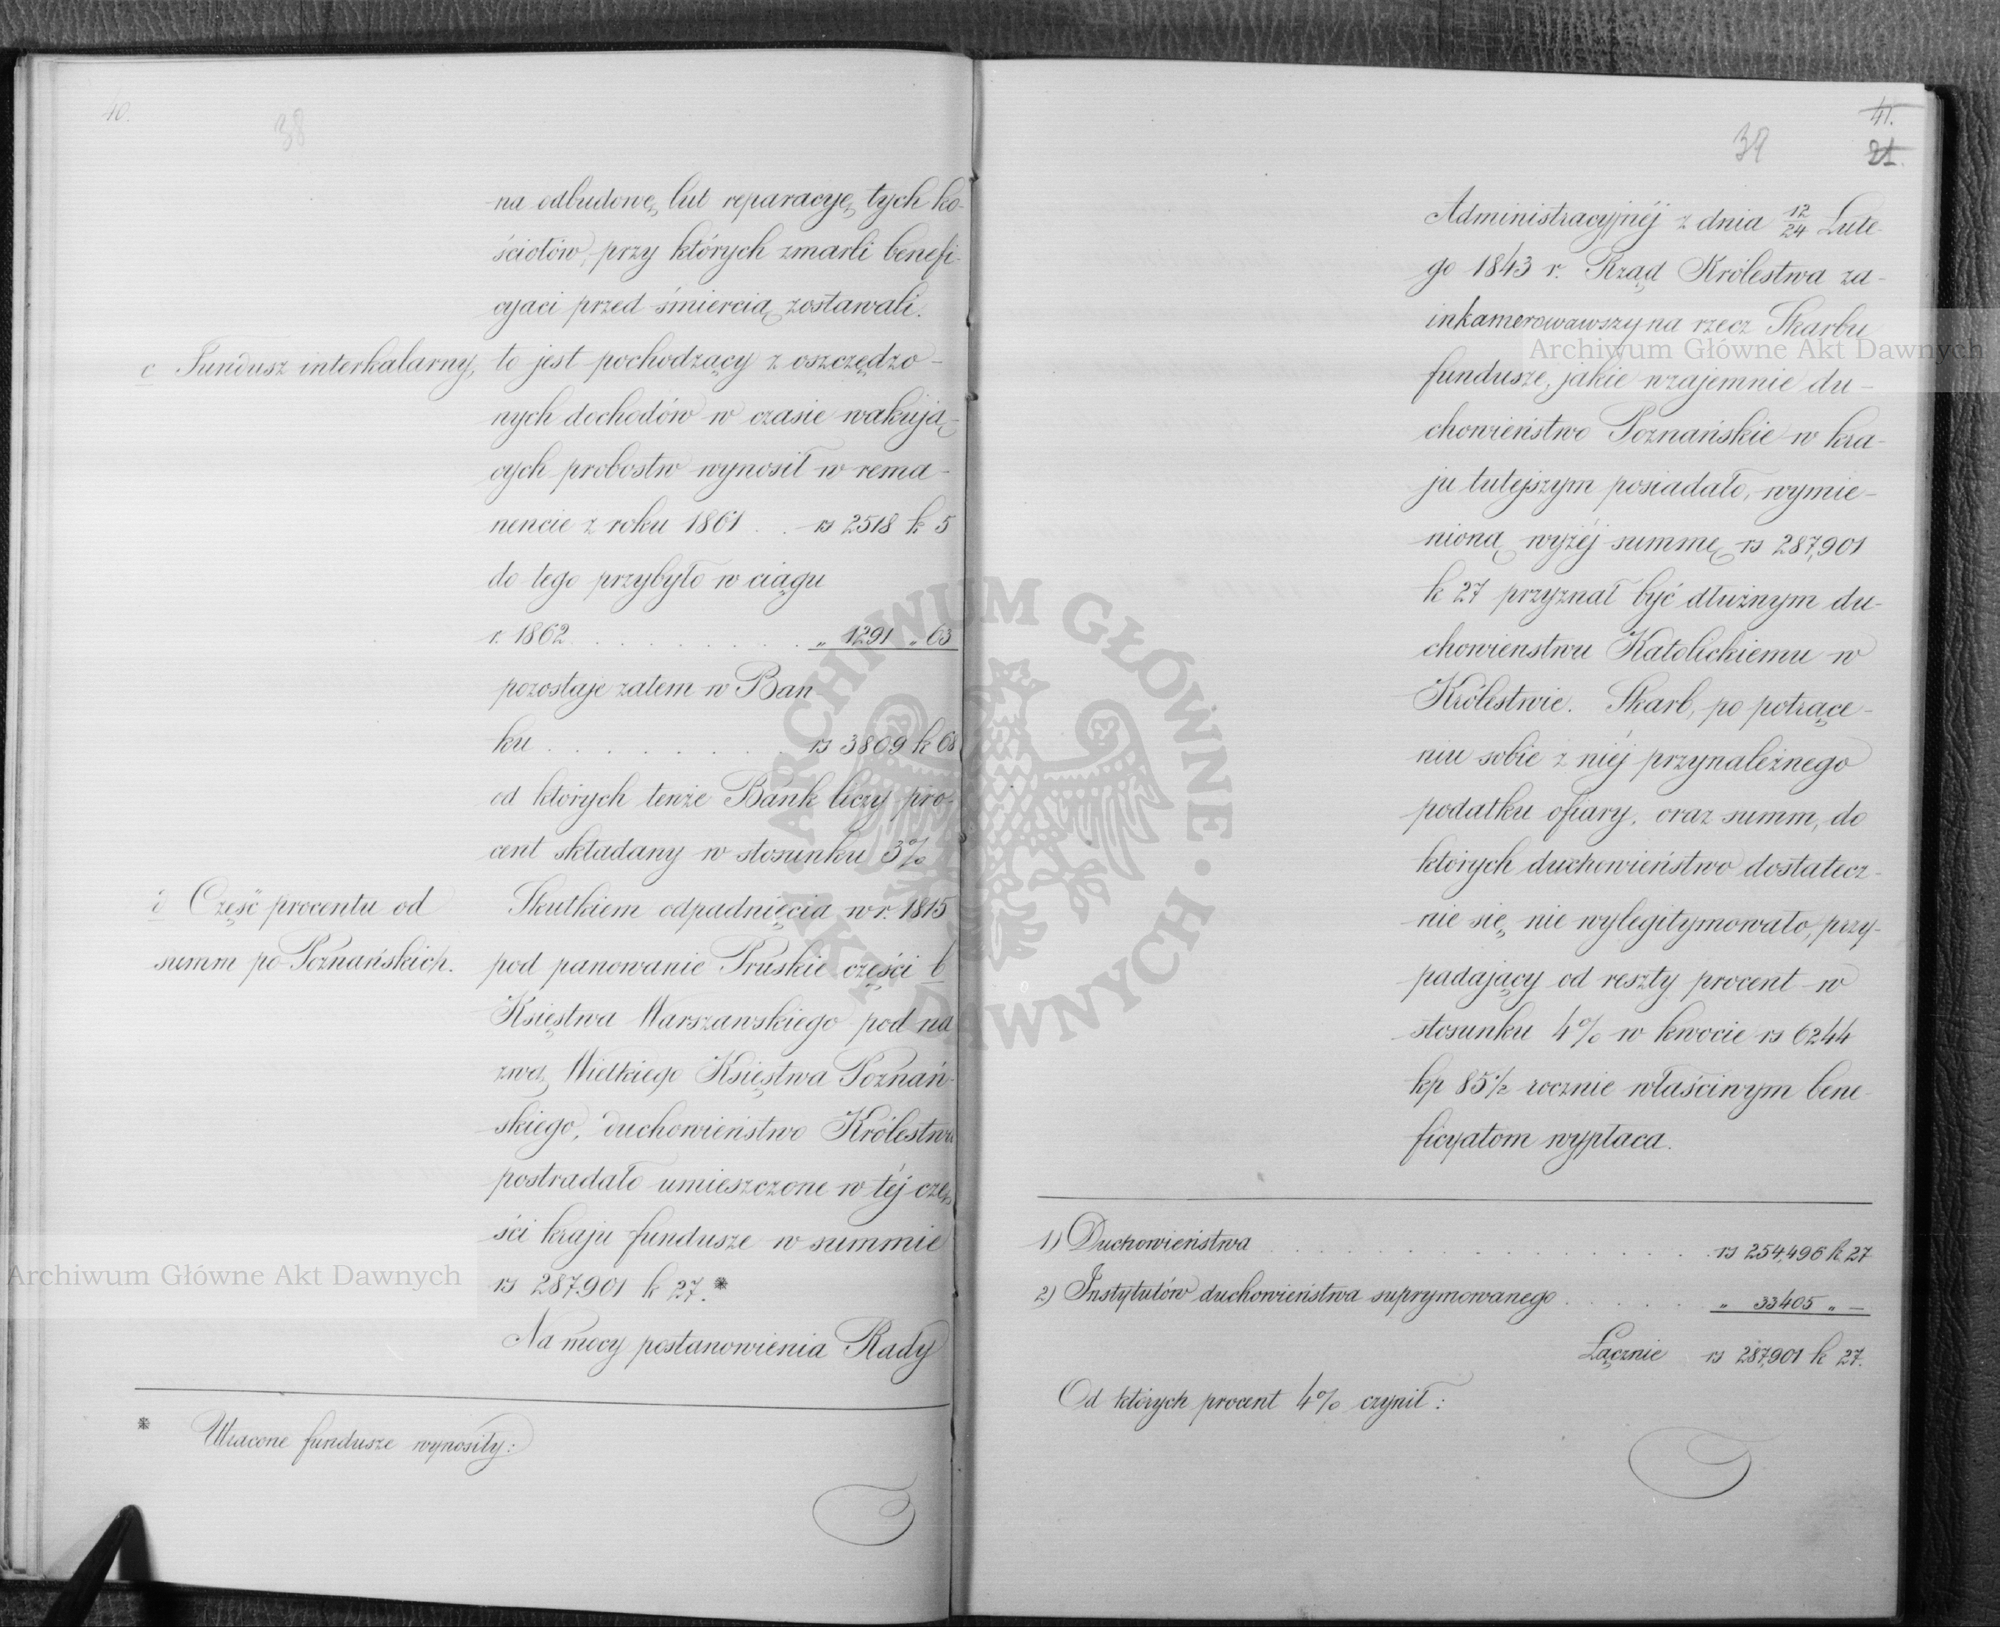 40.
38
na odbudowę, lub reparacyę, tych ko-
ściołów, przy których zmarli benefi-
cyaci przed śmiercią zostawali.
c Fundusz interkalarny, to jest pochodzący z oszczędzo-
nych dochodów w czasie wakują-
cych probostw wynosił w rema-
nencie z roku 1861 . . rs 2518 k 5
do tego przybyło w ciągu
r. 1862 . . . . . . . . „ 1291 „ 63
pozostaje zatem w Ban-
ku . . . . . . . . rs 3809 k 68
od których tenże Bank liczy pro-
cent składany w stosunku 3%
d Część procentu od
summ po Poznańskich.
Skutkiem odpadnięcia w r. 1815
pod panowanie Pruskie części b
Księstwa Warszawskiego pod na
zwą Wielkiego Księstwa Poznań-
skiego, duchowieństwo Królestwa
postradało umieszczone w téj czę-
ści kraju fundusze w summie
rs 287,901 k 27.*
Na mocy postanowienia Rady
* Utracone fundusze wynosiły:
41.
39
21.
Administracyjnéj z dnia 12/24 Lute-
go 1843 r. Rząd Królestwa za-
inkamerowawszy na rzecz Skarbu
fundusze, jakie wzajemnie du-
chowieństwo Poznańskie w kra-
ju tutejszym posiadało, wymie-
nioną wyżéj summę rs 287,901
k 27 przyznał być dłużnym du-
chowienstwu Katolickiemu w
Królestwie. Skarb, po potrące-
niu sobie z niéj przynależnego
podatku ofiary, oraz summ, do
których duchowieństwo dostatecz-
nie się nie wylegitymowało, przy-
padający od reszty procent w
stosunku 4% w kwocie rs 6244
kp 85½ rocznie właściwym bene-
ficyatom wypłaca.
1) Duchowieństwa . . . . . . . . . . rs 254,496 k. 27
2) Instytutów duchowieństwa suprymowanego . . . . . „ 33405 „ —
Łącznie rs 287,901 k 27.
Od których procent 4% czynił:
Archiwum Główne Akt Dawnych
Archiwum Główne Akt Dawnych
ARCHIWUM GŁÓWNE · AKT DAWNYCH ·